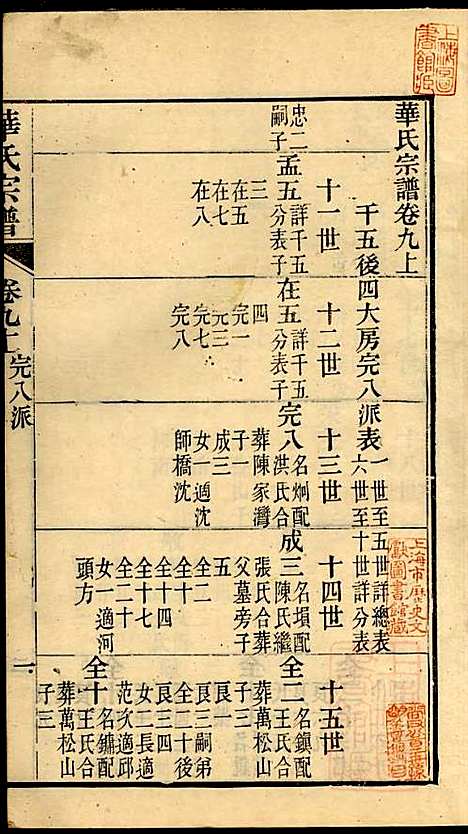 華氏宗譜卷九上
千五後四大房完八派表
一世至五世詳總表
六世至十世詳分表
十一世
十二世
十三世
十四世
十五世
忠二
嗣子
孟五
詳千五
分表子
三
在五
在七
在八
在五
詳千五
分表子
四
完一
完三
完七
完八
完八
名炯配
洪氏合
葬陳家灣
子一
成三
女一適沈
師橋沈
成三
名塤配
陳氏繼
張氏合葬
父墓旁子
五
全二
全十
全十四
全十七
全二十
女一適河
頭方
全二
名鎮配
王氏合
葬萬松山
子三
艮一
艮三嗣弟
全十後
艮三四
女二長適
范次適邱
全十
名鏽配
王氏合
葬萬松山
子三
華氏宗譜
卷九二
完八派
一
上海圖
書館藏
上海市歷史文
獻圖書館藏